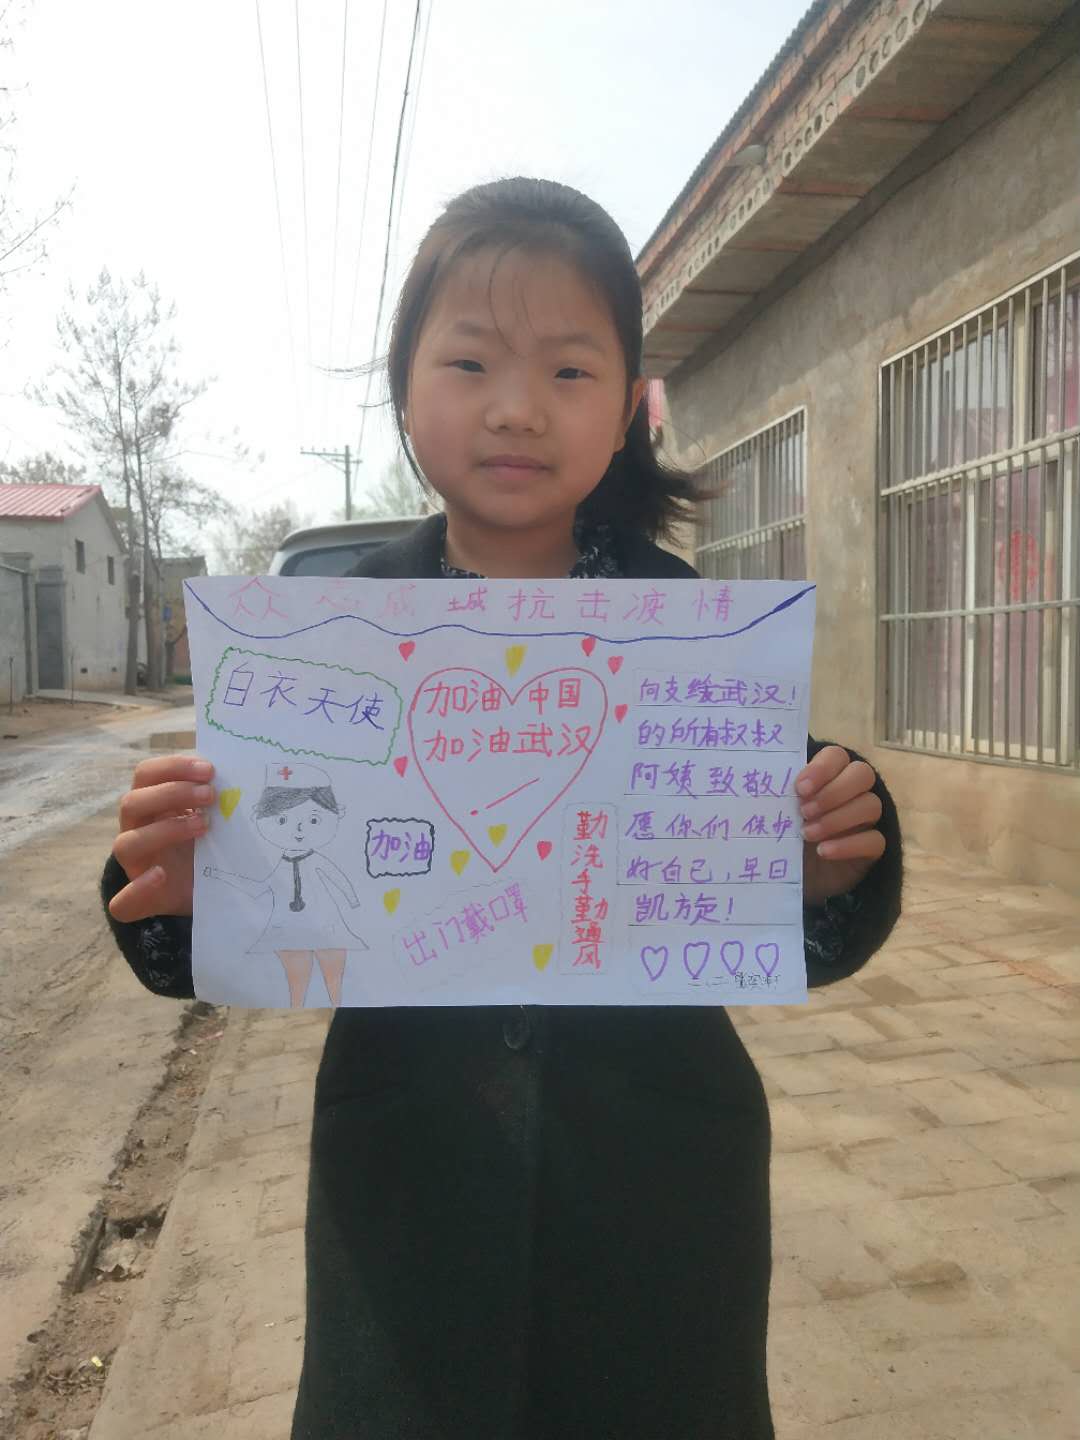 众志成城抗击疫情
白衣天使
加油中国
加油武汉
!
加油
出门戴口罩
勤洗手勤通风
向支援武汉!
的所有叔叔
阿姨致敬!
愿你们保护
好自己,早日
凯旋!